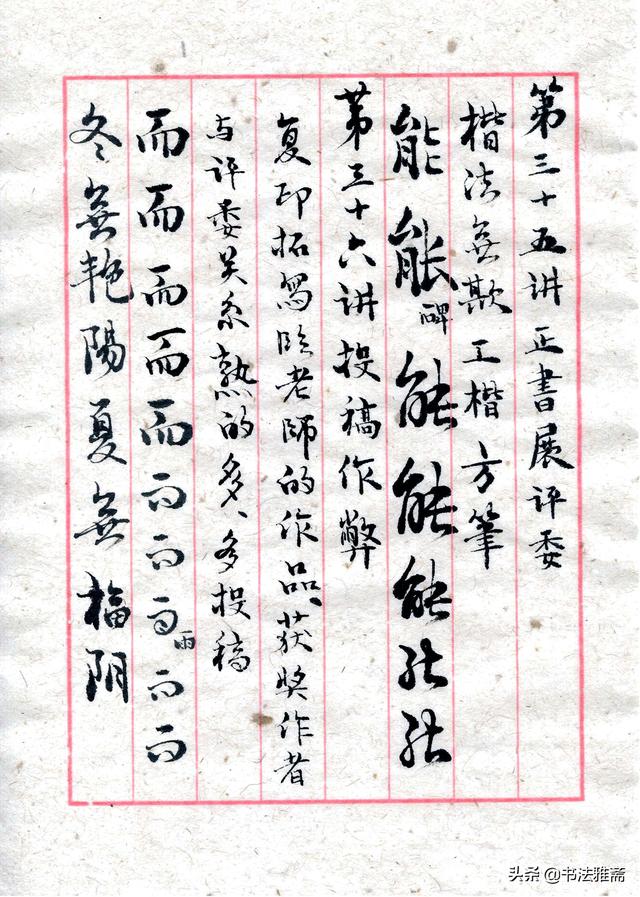 第三十五讲正書展评委
楷法無欺工楷方筆
能能碑能能能能能
第三十六讲投稿作弊
复印拓写临老师的作品、获奖作者
与评委关系熟的多、多投稿
而而而而而而而而雨而而
冬無艳陽夏無福阴
头条 @书法雅斋